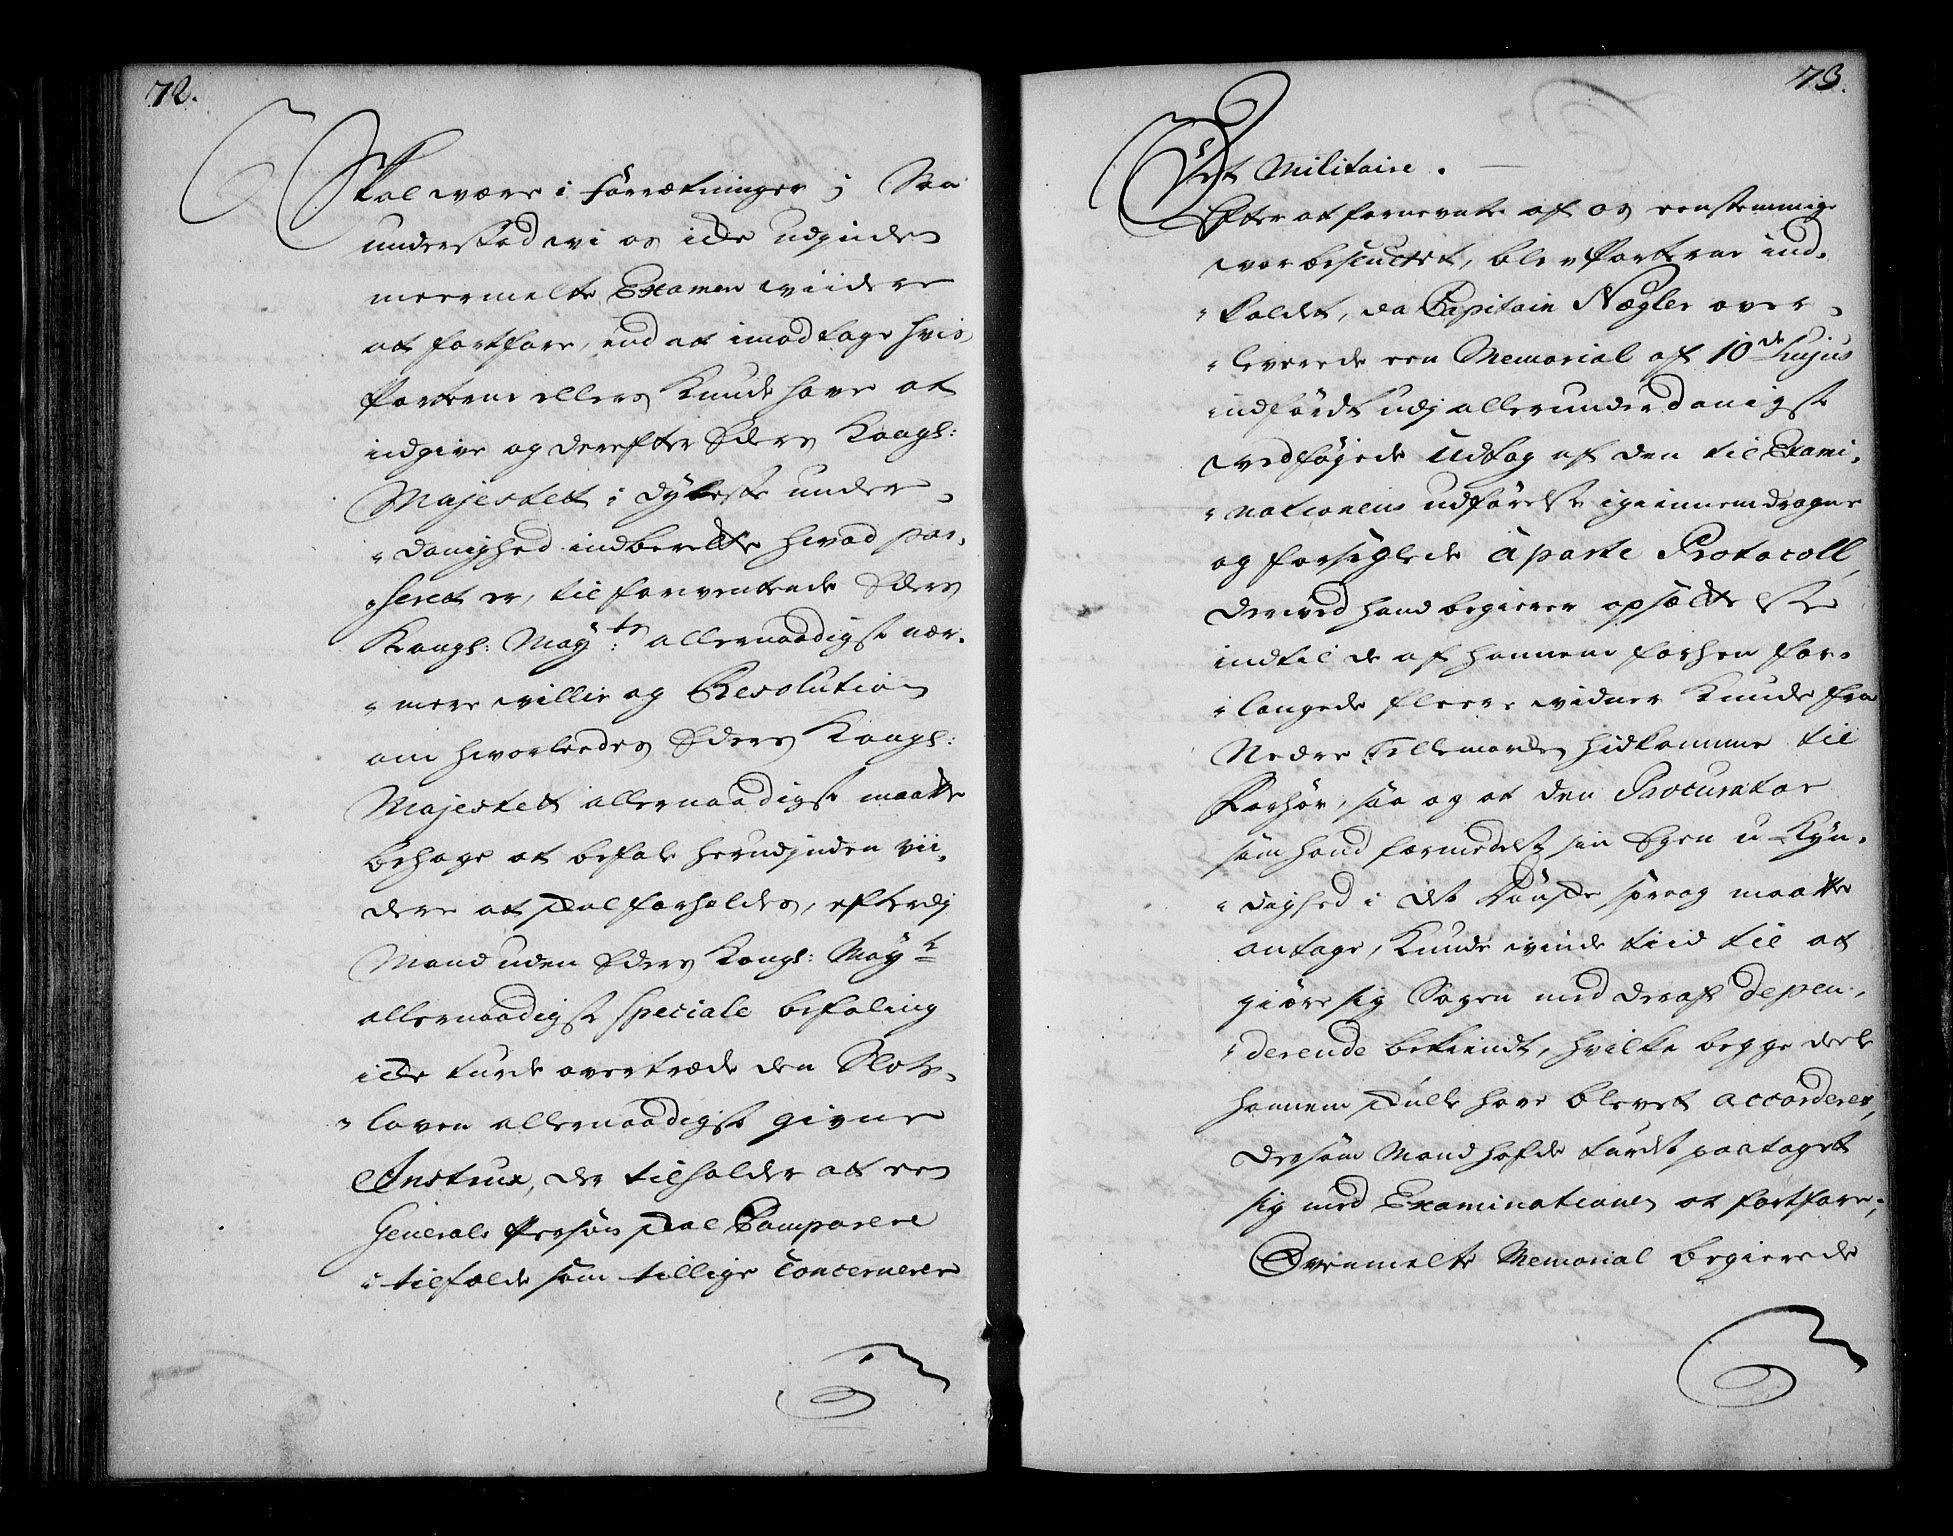 72.
Skal være i forrætninger; Saa
understod wi os icke udginden
meermelte Examen wiidere
at fortfare, end at imodtage hvis
Parterne ellers Kunde have at
indgive og derefter Eders Kongl:
Majestett i dybeste under-
"danighed indberette hvad pas-
"seret er, til forventende Eders
Kongl: May:ts allernaadigst nær-
"mere villie og Resolution
om hvorleedes Eders Kongl:
Majestett allernaadigst maatte
behage at befale herudjnden vii-
dere at skal forholdes, efterdj
Mand uden Eders Kongl: Mayt
allernaadigst speciale befaling
icke turde overtræde den Slots-
"loven allernaadigst givne
Instrux, der tilholder at een
Generals Persøn skal Comparere
i tilfælde som tillige Concernerer
73.
Det Militaire.
Efter at fornevnte af os eenstemmige
var besluttet, blev Parterne ind-
"kaldet, da Capitain Nægler over-
"leverede een Memorial af 10de hujus
indført udj allerunderdanigst
vedføyede Udtog af den til Exami-
"nationens udførelse igiennemdragne
og forseglede àparte Protocoll,
derved hand begierer opsættelse
indtil de af hannem forhen for-
"langede fleere vidner Kunde fra
Nedre Tellemarken hidkomme til
Forhør, saa og at den Procurator
som hand formedelst sin Egen u-kyn-
"dighed i det Danske sprog maatte
antage, Kunde vinde tiid til at
giøre sig Sagen med deraf depen-
"derende bekiendt, hvilke begge deele
hannem skulle have blevet accorderet,
dersom Mand hafde turdet paataget
sig med Examinationen at fortfare;
Ovenmelte Memorial begierede